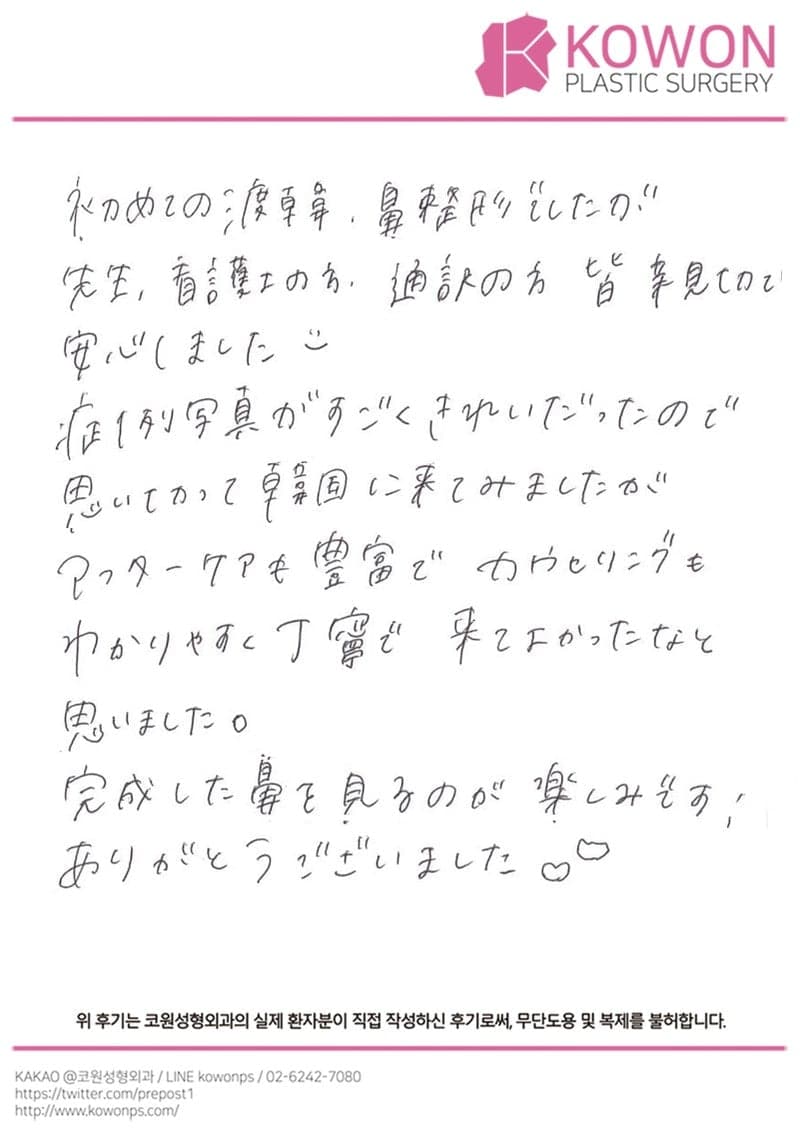 KOWON
PLASTIC SURGERY
初めての渡韓、鼻整形でしたが
先生、看護士の方、通訳の方 皆 親切で
安心しました
症例写真がすごくきれいだったので
思いきって韓国に来てみましたが
アフターケアも豊富で カウセリングも
わかりやすく丁寧で 来てよかったなと
思いました。
完成した鼻を見るのが楽しみです!
ありがとうございました♡♡
위 후기는 코원성형외과의 실제 환자분이 직접 작성하신 후기로써, 무단도용 및 복제를 불허합니다.
KAKAO @코원성형외과 / LINE kowonps / 02-6242-7080
https://twitter.com/prepost1
http://www.kowonps.com/